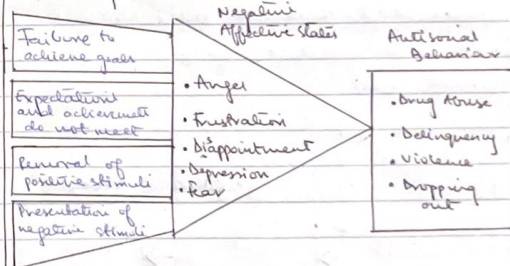 Failure to
achieve goals
Expectations
and achievement
do not meet
Removal of
positive stimuli
Presentation of
negative stimuli
Negative
Affective States
• Anger
• Frustration
• Disappointment
• Depression
• Fear
Antisocial
Behavior
• Drug Abuse
• Delinquency
• Violence
• Dropping
out